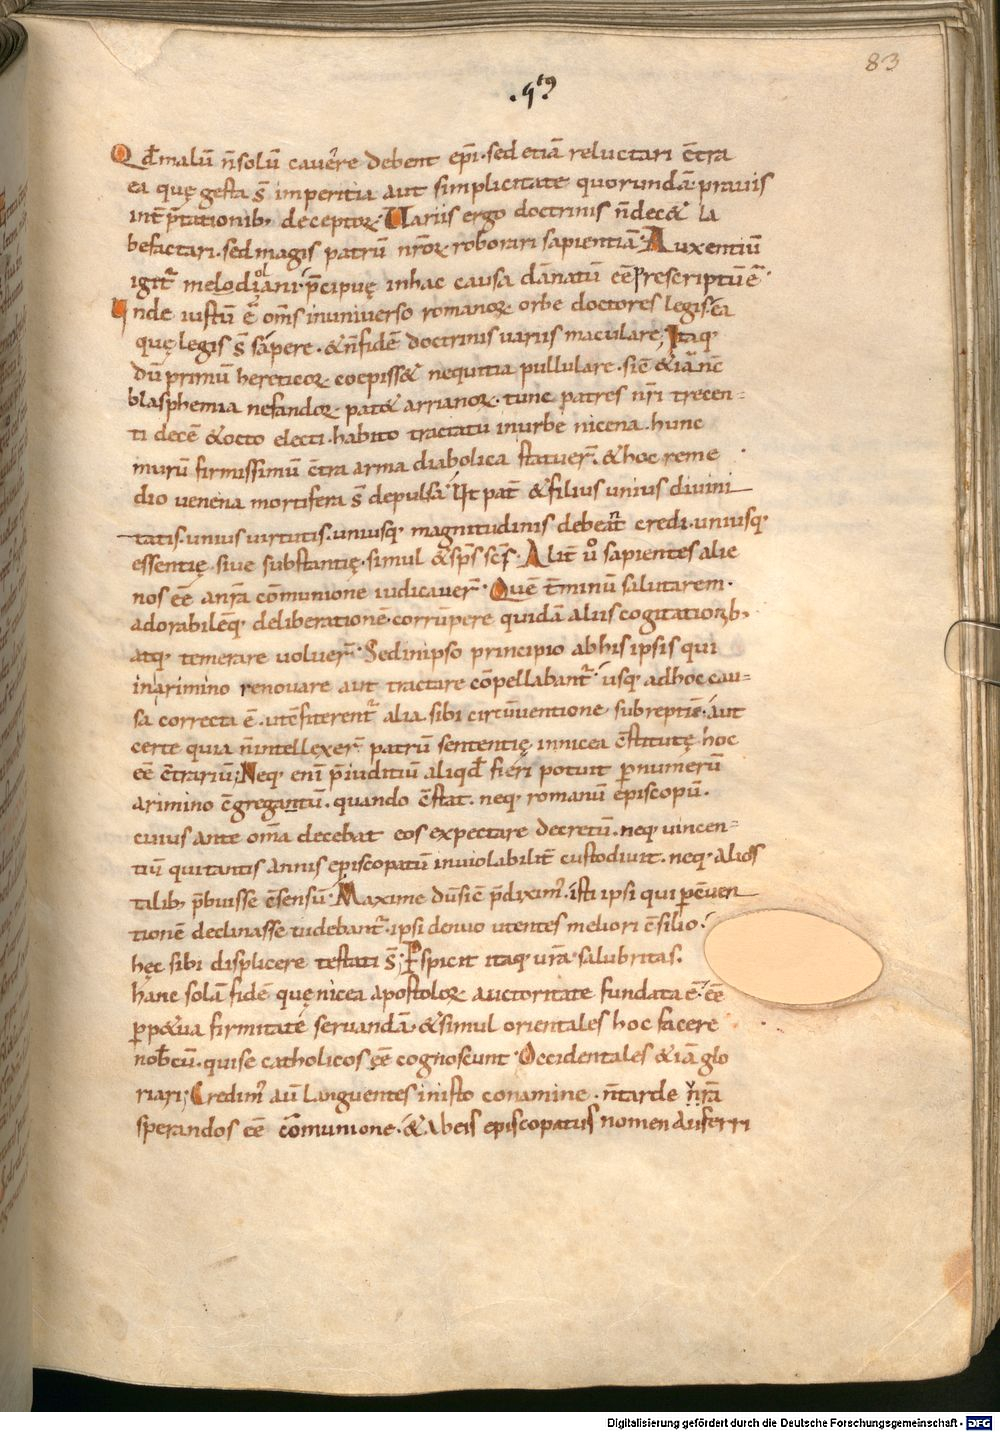 83
.5tꝰ.
Qđ malū n̄ solū cavere debent ep̄i. sed etiā reluctari c̄tra
ea quę gesta s̄ imperitia aut simplicitate quorundā. pravis
int̄p̄tationib; deceptoꝝ. Variis ergo doctrinis n̄ decet la
befactari. sed magis patrū nr̄oꝝ roborari sapientiā. Auxentiū
igit̄ melodiolani. p̄cipuę in hac causa dānatū eē p̄rescriptū ē.
Unde iustū ē om̄s in universo romanoꝝ orbe doctores legis. ea
quę legis s̄ sapere. & n̄ fidē doctrinis variis maculare; Itaq;
dū primū hereticoꝝ coepisset nequitia pullulare. sic̄ & iā nc̄
blasphemia nefandoꝝ patet arrianoꝝ. tunc patres nr̄i trecen-
ti decē & octo electi. habito tractatu in urbe nicena. hunc
murū firmissimū c̄tra arma diabolica statuer̄. & hoc reme
dio venena mortifera s̄ depulsa. Ut pat̄ & filius unius divini
tatis. unius virtutis. uniusq; magnitudinis debeant credi. uniusq;
essentię. sive substantię. simul & sp̄s sc̄s. Alit̄ ů sapientes alie
nos eē a nr̄a cōmunione iudicaver̄. Quē t̄minū salutarem.
adorabilēq; deliberationē. corrūpere quidā aliis cogitationib;
atq; temerare voluer̄. Sed in ipso principio ab his ipsis qui
in arimino renovare aut tractare cōpellabant̄. usq; ad hoc cau-
sa correcta ē. ut c̄fiterent̄ alia sibi circūventione subreptū. aut
certe quia n̄ intellexer̄ patrū sententię in nicea c̄stitutę hoc
eē c̄trariū; Neq; eni p̄iuditiū aliqđ fieri potuit p̲ numerū
arimino c̄gregantū. quando c̄stat. neq; romanū episcopū.
cuius ante om̄a decebat eos expectare decretū. neq; vincen-
tiū qui tantis annis episcopatū inviolabilit̄ custodivit. neq; alios
talib; p̄buisse c̄sensū. Maxime dū sic̄ p̄dixim̄. isti ipsi qui p̲ c̄ven
tionē declinasse videbant̄. ipsi denuo utentes meliori c̄silio.
hęc sibi displicere testati s̄; P̲spicit itaq; vr̄a salubritas.
hanc solā fidē quę nicea apostoloꝝ auctoritate fundata ē. eē
p̲petua firmitate servandā. & simul orientales hoc facere
nob̄cū. qui se catholicos eē cognoscunt. Occidentales & iā glo
riari; Credim̄ aū languentes in isto conamine. n̄ tarde nr̄a
sperandos eē cōmunione. & ab eis episcopatus nomen auferri
Digitalisierung gefördert durch die Deutsche Forschungsgemeinschaft - DFG